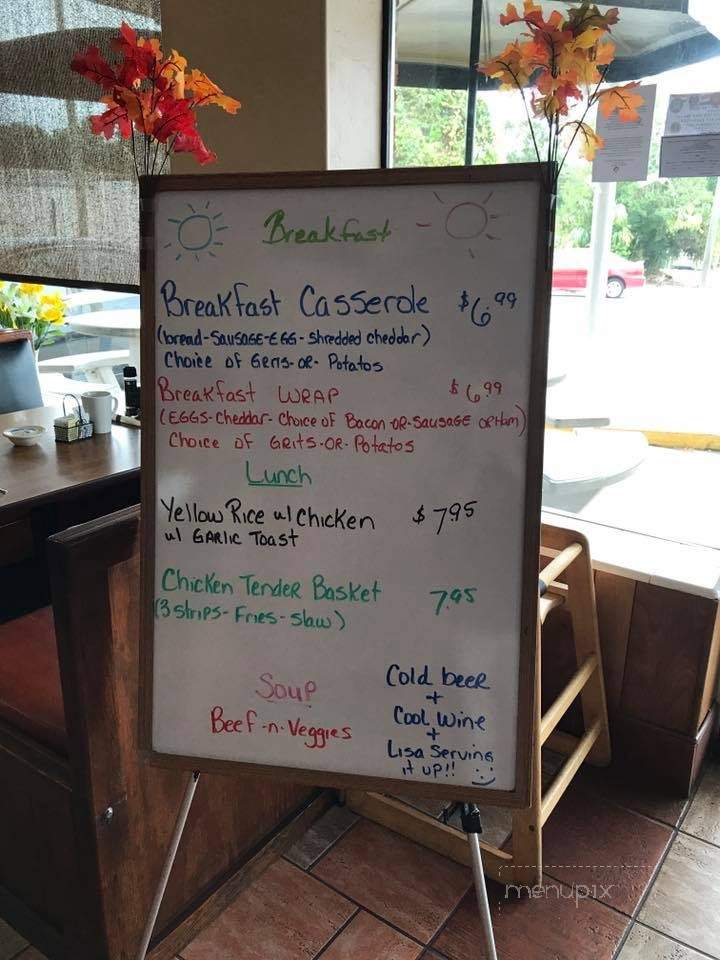 Breakfast
Breakfast Casserole $6.99
(bread-SAUSAGE-EGG-shredded cheddar)
Choice of Grits-or-Potatos
Breakfast WRAP $6.99
(EGGS-Cheddar-Choice of Bacon-OR-SAUSAGE ORHam)
Choice of GRITS-OR-Potatos
Lunch
Yellow Rice w/ Chicken $7.95
w/ GARLIC TOAST
Chicken Tender Basket 7.95
(3 strips-Fries-slaw)
Soup
Beef-n-Veggies
Cold beer
+
Cool Wine
+
Lisa Serving
it up!!
menupix